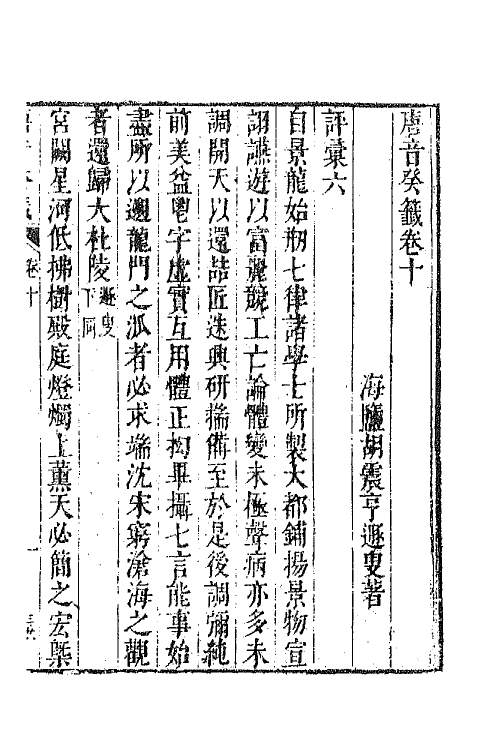 唐音癸籤卷十
海鹽胡震亨遯叟著
評彙六
自景龍始剏七律諸學士所製大都鋪揚景物宣
詡讌遊以富麗競工亡論體變未極聲病亦多未
調開天以還喆匠迭興研揣備至於是後調彌純
前美益鬯字虛實互用體正拗畢攝七言能事始
盡所以遡龍門之派者必求端沈宋窮滄海之觀
者還歸大杜陵遯叟下同
宮闕星河低拂樹殿庭燈燭上薰天必簡之宏槩
卷十
一